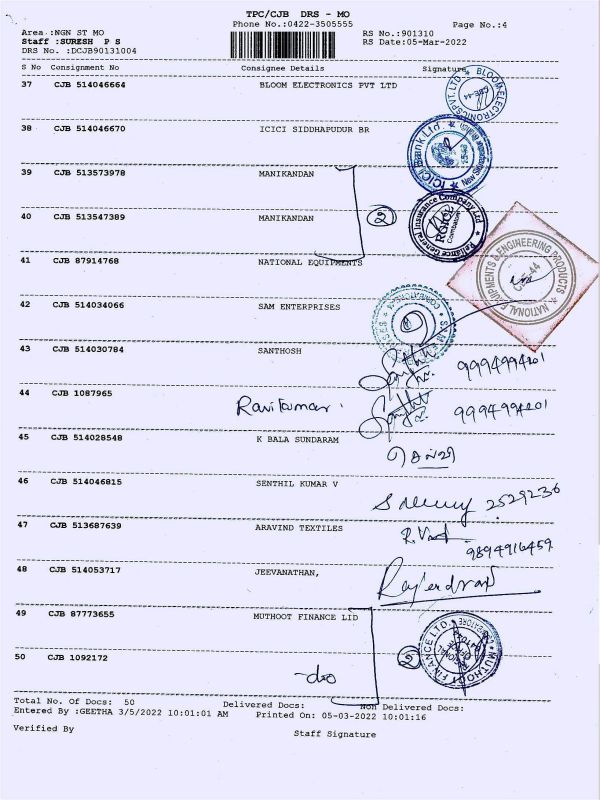 TPC/CJB DRS - MO
Phone No.:0422-3505555
Page No.:4
Area :NGN ST MO
RS No.:901310
Staff :SURESH P S
RS Date:05-Mar-2022
DRS No. :DCJB90131004
S No Consignment No Consignee Details Signature
37 CJB 514046664 BLOOM ELECTRONICS PVT LTD
BLOOM ELECTRONICS PVT. LTD.
CBE-44
38 CJB 514046670 ICICI SIDDHAPUDUR BR
ICICI Bank Ltd.
39 CJB 513573978 MANIKANDAN
40 CJB 513547389 MANIKANDAN
②
Reliance General Insurance Company Ltd
RGICL
Coimbatore
41 CJB 87914768 NATIONAL EQUIPMENTS
NATIONAL EQUIPMENTS & ENGINEERING PRODUCTS
CBE-44
42 CJB 514034066 SAM ENTERPRISES
COIMBATORE
43 CJB 514030784 SANTHOSH
9994994201
44 CJB 1087965 Ravikumar.
9994994201
45 CJB 514028548 K BALA SUNDARAM
46 CJB 514046815 SENTHIL KUMAR V
2529236
47 CJB 513687639 ARAVIND TEXTILES
9894916459
48 CJB 514053717 JEEVANATHAN,
Rajendran
49 CJB 87773655 MUTHOOT FINANCE LID
②
MUTHOOT FINANCE LTD.
50 CJB 1092172 -do
Total No. Of Docs: 50 Delivered Docs: Non Delivered Docs:
Entered By :GEETHA 3/5/2022 10:01:01 AM Printed On: 05-03-2022 10:01:16
Verified By
Staff Signature